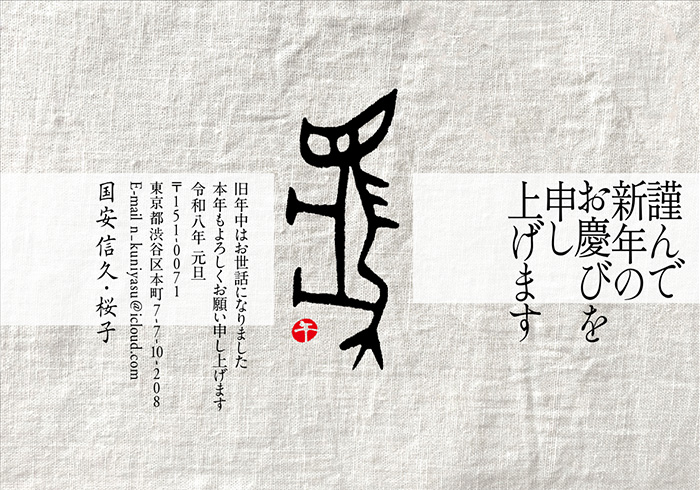 謹んで
新年の
お慶びを
申し
上げます
午
旧年中はお世話になりました
本年もよろしくお願い申し上げます
令和八年 元旦
〒151-0071
東京都渋谷区本町7-7-10-208
E-mail n-kuniyasu@icloud.com
国安信久・桜子